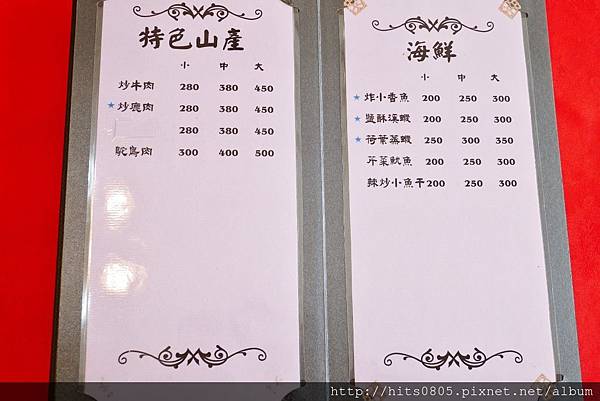 特色山產
小 中 大
炒牛肉 280 380 450
★炒鹿肉 280 380 450
280 380 450
鴕鳥肉 300 400 500
海鮮
小 中 大
★炸小香魚 200 250 300
★鹽酥溪蝦 200 250 300
★荷葉蒸蝦 250 300 350
芹菜魷魚 200 250 300
辣炒小魚干 200 250 300
http://hits0805.pixnet.net/album